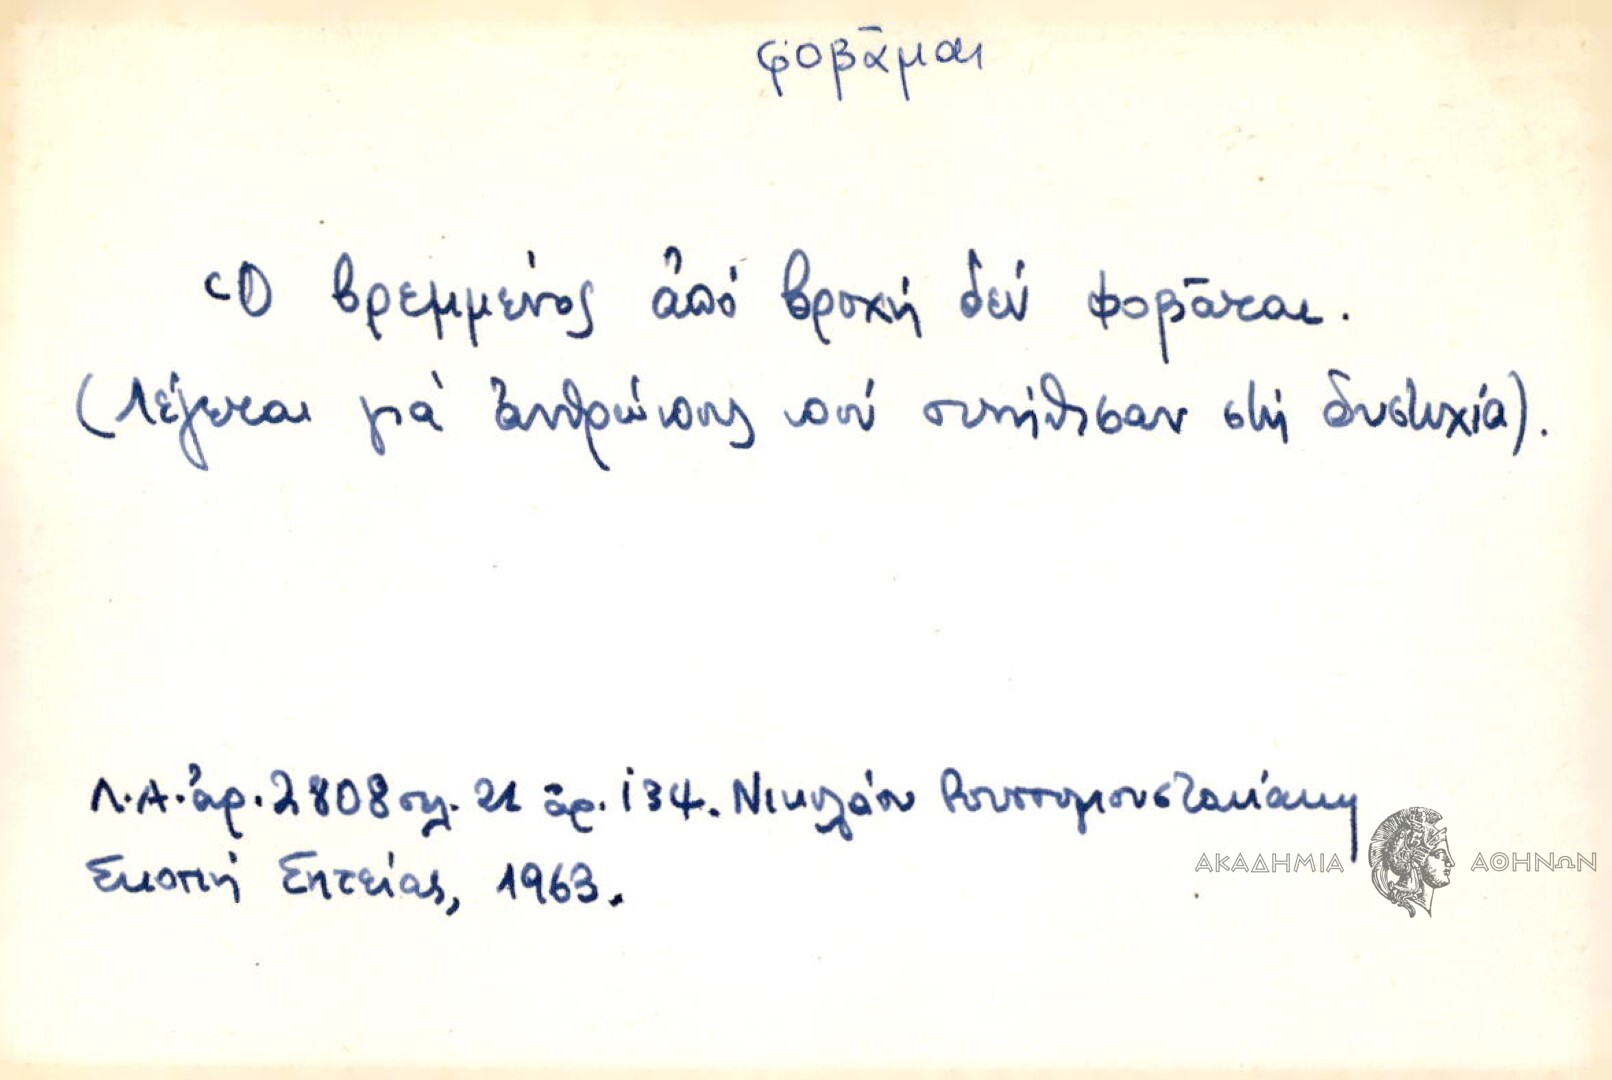 φοβᾶμαι
Ὁ βρεμμένος ἀπό βροχή δέν φοβᾶται.
(Λέγεται γιά ἀνθρώπους πού συνήθισαν στή δυστυχία).
Λ.Α. ἀρ. 2808 σελ. 21 ἀρ. 134. Νικολάου
Σκοπή Σητείας, 1963.
ΑΚΑΔΗΜΙΑ ΑΘΗΝΩΝ